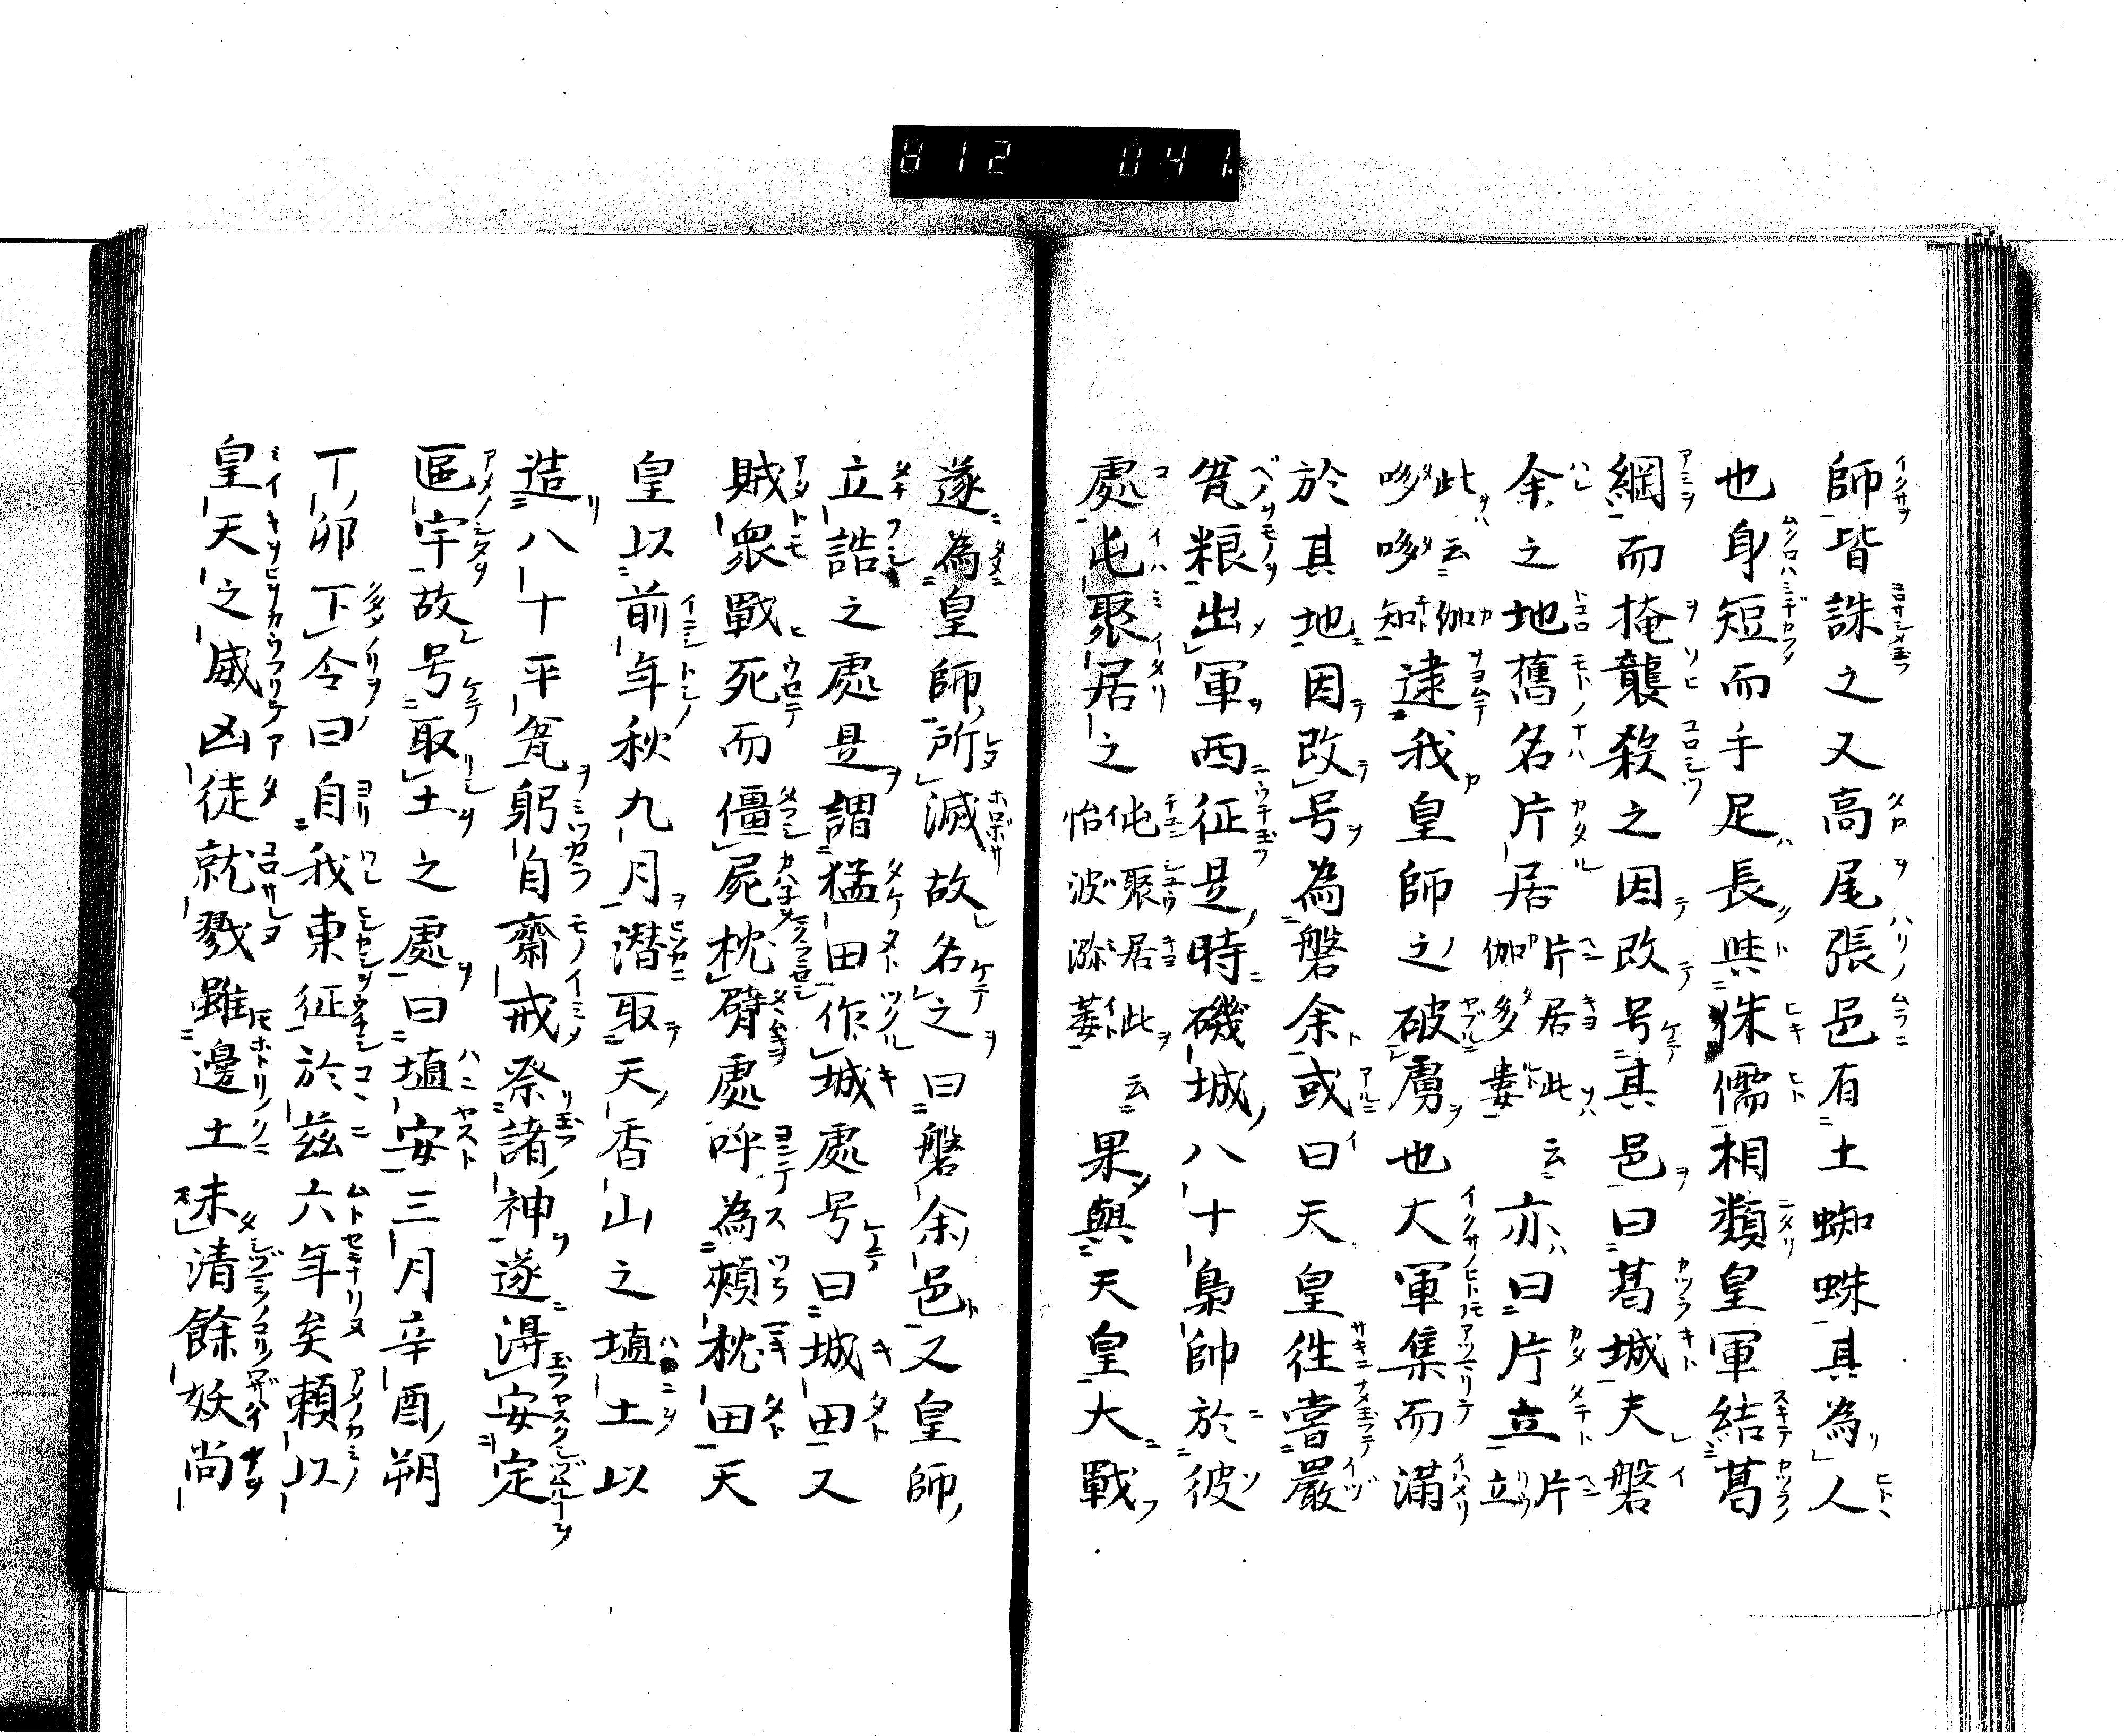 812 041.
師皆誅之又高尾張邑有土蜘蛛其為人
也身短而手足長與侏儒相類皇軍結葛
網而掩襲殺之因改号其邑曰葛城夫磐
余之地舊名片居片居此云伽多婁亦曰片立片立
此云伽哆哆知逮我皇師之破虜也大軍集而滿
於其地因改号為磐余或曰天皇徃嘗嚴
瓮粮出軍西征是時磯城八十梟帥於彼
處屯聚居之屯聚居此云怡波瀰萎果與天皇大戰
遂為皇師所滅故名之曰磐余邑又皇師
立誥之處是謂猛田作城處号曰城田又
賊衆戰死而僵屍枕臂處呼為頰枕田天
皇以前年秋九月潜取天香山之埴土以
造八十平瓮躬自齋戒祭諸神遂淂安定
區宇故号取土之處曰埴安三月辛酉朔
丁卯下令曰自我東征於茲六年矣頼以
皇天之威凶徒就戮雖邊土未清餘妖尚